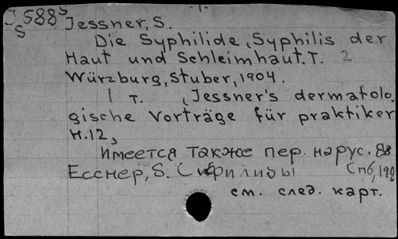 588
S
Jessner, S.
Die Syphilide, Syphilis der
Haut und Schleimhaut. T. 2
Würzburg, Stuber, 1904.
1 т. (Jessner's dermatolo-
gische Vorträge für praktiker
H.12,
Имеется также пер. на рус. яз
Есснер, S. Сифилиды Спб, 190
см. след. карт.